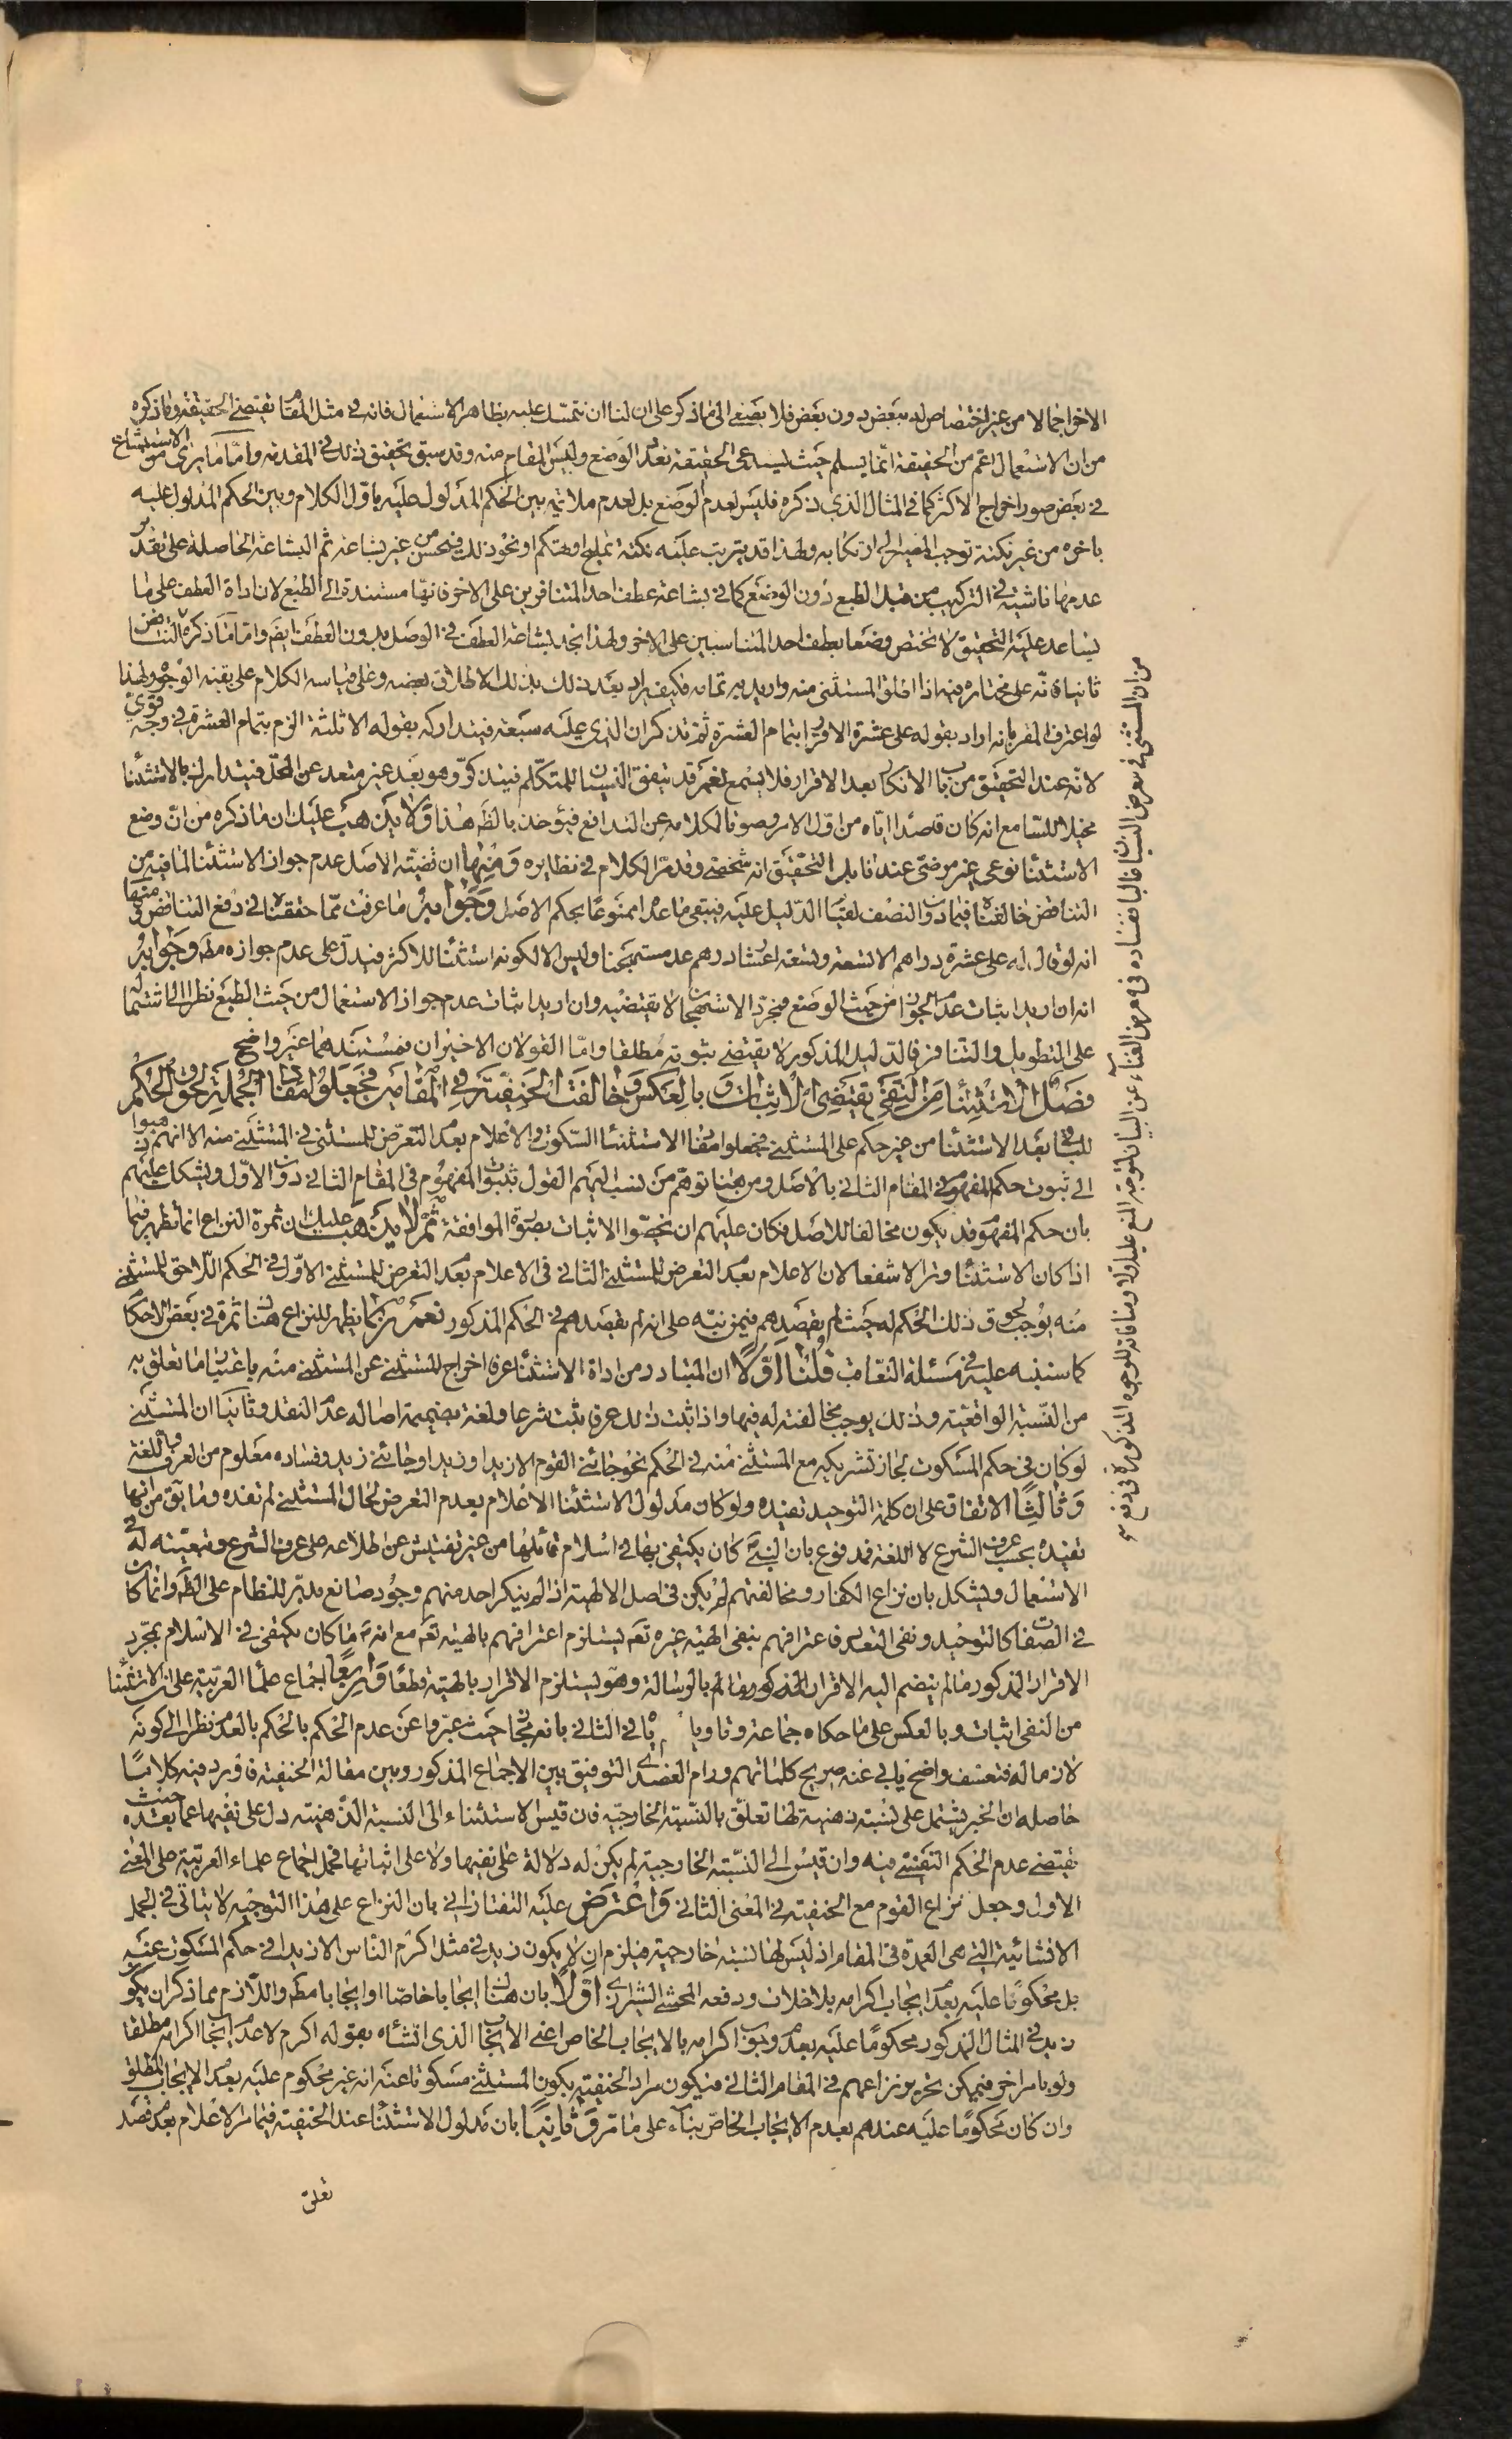 الاخراج الا من غير اختصاص له ببعض دون بعض فلا يصغى الى ما ذكر على ان لنا ان نتمسك عليه بظاهر الاستعمال فانه في مثل المقام يقتضي الحقيقة وما ذكره
من ان الاستعمال اعم من الحقيقة انما يسلم حيث يستدعى الحقيقة تعدد الوضع وليس المقام منه وقد سبق تحقيق ذلك في المقدمة واما ما يرى من الاستبشاع
في بعض صور اخراج الاكثر كما في المثال الذي ذكره فليس لعدم الوضع بل لعدم ملائمة بين الحكم المدلول عليه باول الكلام وبين الحكم المدلول عليه
باخره من غير نكتة توجب المصير الى ارتكابه ولهذا قد يترتب عليه نكتة تمليح او تهكم او نحو ذلك فيحسن من غير بشاعة ثم البشاعة الحاصلة على تقدير
عدمها ناشية في التركيب من قبل الطبع دون الوضع كما في بشاعة عطف احد المتنافرين على الاخر فانها مستندة الى الطبع لان اداة العطف على ما
يساعد عليه التحقيق لا تختص وضعا بعطف احد المتناسبين على الاخر ولهذا نجد بشاعة العطف في الوصل بدون العطف ايضم واما ما ذكره من التناقض
ثانيا فانه على مختاره فيه اذا اطلق المستثنى منه واريد به تمامه فكيف يراد بعد ذلك بذلك الاطلاق بعضه وعلى قياسه الكلام على بقية الوجوه ولهذا
لو اعترف المقر بانه اراد بقوله على عشرة الاقرار بتمام العشرة ثم تذكر ان الذي عليه سبعة فيتداركه بقوله الا ثلثة الزم بتمام العشرة في وجه قوي
لانه عند التحقيق من باب الانكار بعد الاقرار فلا يسمع نعم قد يتفق النسيان للمتكلم فيتذكر وهو بعد غير متعد عن المحل فيتدارك بالاستثناء
مخيلا للسامع انه كان قاصدا اياه من اول الامر وصونا لكلامه عن التدافع فيؤخذ بالظ هذا ولا يذهب عليك ان ما ذكره من ان وضع
الاستثناء نوعي غير مرضي عندنا بل التحقيق انه شخصي وقد مر الكلام في نظايره ومنها ان قضية الاصل عدم جواز الاستثناء لما فيه من
التناقض خالفناه فيما دون النصف لقيام الدليل عليه فيبقى ما عداه ممنوعا بحكم الاصل وجوابه ما عرفت مما حققناه في دفع التناقض ومنها
انه لو قال له على عشرة دراهم الا تسعة وتسعة اعشار درهم عد مستهجنا وليس الا لكونه استثناء للاكثر فيدل على عدم جوازه مطه وجوابه
انه ان اريد اثبات عدم الجواز من حيث الوضع فمجرد الاستهجان لا يقتضيه وان اريد اثبات عدم جواز الاستعمال من حيث الطبع نظرا الى اشتماله
على التطويل والتنافر فالدليل المذكور لا يقتضي ثبوته مطلقا واما القولان الاخيران فمستندهما غير واضح
فصل الاستثناء من النفي يقتضي الاثبات وبالعكس وخالفت الحنفية في المقامين فجعلوا مفاد الجملة لحوق الحكم
للباقي بعد الاستثناء من غير حكم على المستثنى فجعلوا مفاد الاستثناء السكوت والاعلام بعدم التعرض للمستثنى في المستثنى منه الا انهم ذهبوا
الى ثبوت حكم المفهوم في المقام الثاني بالاصل ومن هنا توهم من نسب اليهم القول بثبوت المفهوم في المقام الثاني دون الاول ويشكل عليهم
بان حكم المفهوم قد يكون مخالفا للاصل فكان عليهم ان يخصوا الاثبات بصورة الموافقة ثم لا يذهب عليك ان ثمرة النزاع انما تظهر فيما
اذا كان الاستثناء وترا لا شفعا لان الاعلام بعدم التعرض للمستثنى الثاني في الاعلام بعدم التعرض للمستثنى الاول في الحكم اللاحق للمستثنى
منه يوجب لحوق ذلك الحكم له حيث لم يقصدهم فيمن نبه على انه لم يقصدهم في الحكم المذكور نعم ربما يظهر للنزاع هنا ثمرة في بعض الاحكام
كما سننبه عليه في مسئلة التعاقب قلنا اولا ان المتبادر من اداة الاستثناء عرفا اخراج المستثنى عن المستثنى منه باعتبار ما تعلق به
من النسبة الواقعية وذلك يوجب مخالفته له فيها واذا ثبت ذلك عرفا ثبت شرعا ولغة بضميمة اصالة عدم النقل وثانيا ان المستثنى
لو كان في حكم المسكوت لجاز تشريكه مع المستثنى منه في الحكم نحو جائني القوم الا زيدا وزيد او جائني زيد وفساده معلوم من العرف واللغة
وثالثا الاتفاق على ان كلمة التوحيد تفيده ولو كان مدلول الاستثناء الاعلام بعدم التعرض لحال المستثنى لم تفده وما يق من انها
تفيده بحسب عرف الشرع لا اللغة فمدفوع بان النبي كان يكتفي بها في اسلام قائلها من غير تفتيش عن اطلاعه على عرف الشرع وتبعيته له في
الاستعمال ويشكل بان نزاع الكفار ومخالفتهم لم يكن في اصل الالهية اذ لم ينكر احد منهم وجود صانع مدبر للنظام على الظ وانما كان
في الصفات كالتوحيد ونفي التعدد فاعترافهم بنفي الهية غيره تعم يستلزم اعترافهم بالهيته تعم مع انه ما كان يكتفى في الاسلام بمجرد
الاقرار المذكور ما لم ينضم اليه الاقرار بالرسالة وهو يستلزم الاقرار بالهيته قطعا ورابعا اجماع علماء العربية على ان الاستثناء
من النفي اثبات وبالعكس على ما حكاه جماعة وتاويل في الثاني بانه مجاز حيث عبروا عن عدم الحكم بالحكم بالعدم نظرا الى كونه
لازما له فتعسف واضح يابى عنه صريح كلماتهم ورام العضدي التوفيق بين الاجماع المذكور وبين مقالة الحنفية فاورد فيه كلاما
حاصله ان الخبر يشتمل على نسبة ذهنية لها تعلق بالنسبة الخارجية فان قيس الاستثناء الى النسبة الذهنية دل على نفيها عما بعده حيث
يقتضي عدم الحكم النفسي فيه وان قيس الى النسبة الخارجية لم يكن له دلالة على نفيها ولا على اثباتها فحمل اجماع علماء العربية على المعنى
الاول وجعل نزاع القوم مع الحنفية في المعنى الثاني واعترض عليه التفتازاني بان النزاع على هذا التوجيه لا يتاتى في الجمل
الانشائية التي هي العمدة في المقام اذ ليس لها نسبة خارجية فيلزم ان لا يكون زيد في مثل اكرم الناس الا زيدا في حكم المسكوت عنه
بل محكوما عليه بعدم ايجاب اكرامه بلا خلاف ودفعه المحشي الشيرازي اولا بان هنا ايجابا خاصا او ايجابا مطه واللازم مما ذكر ان يكون
زيد في المثال المذكور محكوما عليه بعدم وجوب اكرامه بالايجاب الخاص اعني الايجاب الذي انشأه بقوله اكرم لا عدم ايجاب اكرامه مطلقا
ولو بامر اخر فيمكن تحرير نزاعهم في المقام الثاني فيكون مراد الحنفية بكون المستثنى مسكوتا عنه انه غير محكوم عليه بعدم الايجاب المطلق
وان كان محكوما عليه عندهم بعدم الايجاب الخاص بناء على ما مر وثانيا بان مدلول الاستثناء عند الحنفية فيما مر الاعلام بعدم قصد
تعلق
من ان المستثنى في معرض النسيان